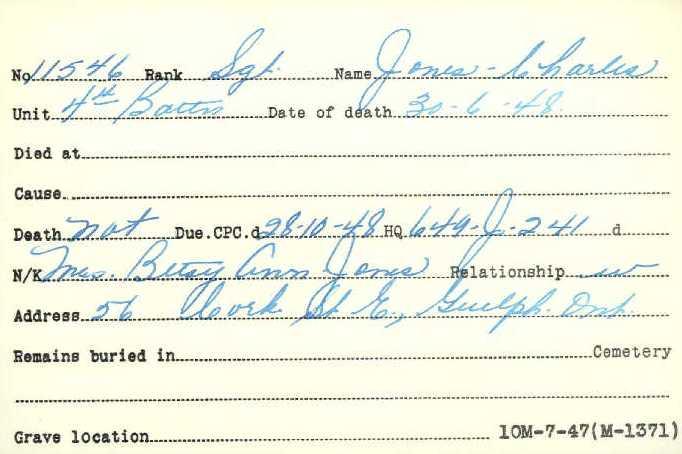 No 11546 Rank Sgt. Name Jones - Charles
Unit 4th Battn Date of death 30-6-48.
Died at
Cause
Death not Due.CPC.d 28-10-48 HQ 649-J-241 d
N/K Mrs. Betsy Ann Jones Relationship w
Address 56 Cork St E., Guelph. Ont.
Remains buried in Cemetery
Grave location 10M-7-47(M-1371)